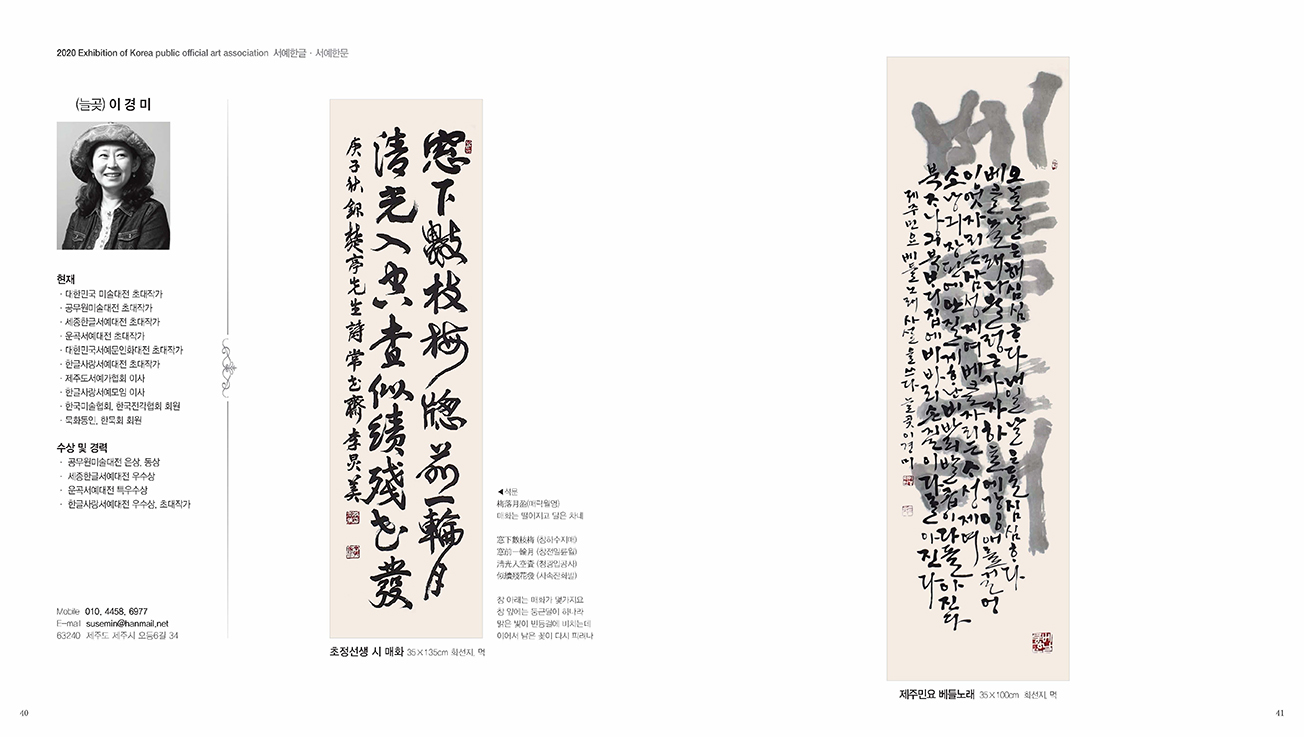 2020 Exhibition of Korea public official art association 서예한글 · 서예한문
(늘곶) 이 경 미
현재
· 대한민국 미술대전 초대작가
· 공무원미술대전 초대작가
· 세종한글서예대전 초대작가
· 운곡서예대전 초대작가
· 대한민국서예문인화대전 초대작가
· 한글사랑서예대전 초대작가
· 제주도서예가협회 이사
· 한글사랑서예모임 이사
· 한국미술협회, 한국전각협회 회원
· 묵화동인, 한묵회 회원
수상 및 경력
· 공무원미술대전 은상, 동상
· 세종한글서예대전 우수상
· 운곡서예대전 특우수상
· 한글사랑서예대전 우수상, 초대작가
Mobile 010, 4458, 6977
E-mail susemin@hanmail,net
63240 제주도 제주시 오등6길 34
窓下數枝梅 窓前一輪月
淸光入空査似續殘花發
庚子秋 錄楚亭先生詩 常 齋 李炅美
◀석문
梅落月盈(매락월영)
매화는 떨어지고 달은 차네
窓下數枝梅 (창하수지매)
窓前一輪月 (창전일륜월)
淸光入空査 (청광입공사)
似續殘花發 (사속잔화발)
창 아래는 매화가 몇가지요
창 앞에는 둥근달이 하나라
맑은 빛이 빈등걸에 비치는데
이어서 남은 꽃이 다시 피려나
초정선생 시 매화 35×135cm 화선지, 먹
오늘날은해심심하다내일날은물심심하다
제주민요 베틀노래 사설을쓰다 늘곶 이경미
제주민요 베틀노래 35×100cm 화선지, 먹
40
41